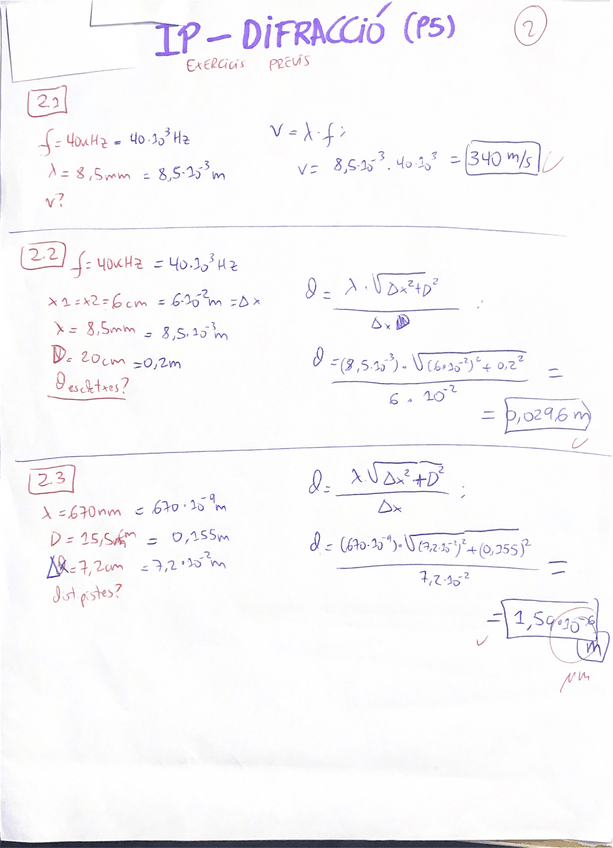 IP - DiFRACCIÓ (P5)
2
EXERCICIS PREVIS
2.1
f = 40kHz = 40·10³ Hz
λ = 8,5mm = 8,5·10⁻³ m
v?
v = λ·f ;
v = 8,5·10⁻³ · 40·10³ = 340 m/s ✓
2.2
f = 40kHz = 40·10³ Hz
x1 = x2 = 6cm = 6·10⁻² m = Δx
λ = 8,5mm = 8,5·10⁻³ m
D = 20cm = 0,2m
d escletxes?
d = λ·√(Δx²+D²) / Δx ;
d = (8,5·10⁻³)·√((6·10⁻²)² + 0,2²) / 6·10⁻² =
= 0,0296 m ✓
2.3
λ = 670nm = 670·10⁻⁹ m
D = 15,5cm = 0,155m
Δx = 7,2cm = 7,2·10⁻² m
dist pistes?
d = λ·√(Δx²+D²) / Δx ;
d = (670·10⁻⁹)·√((7,2·10⁻²)² + (0,155)²) / 7,2·10⁻² =
= 1,59·10⁻⁶ m ✓
μm